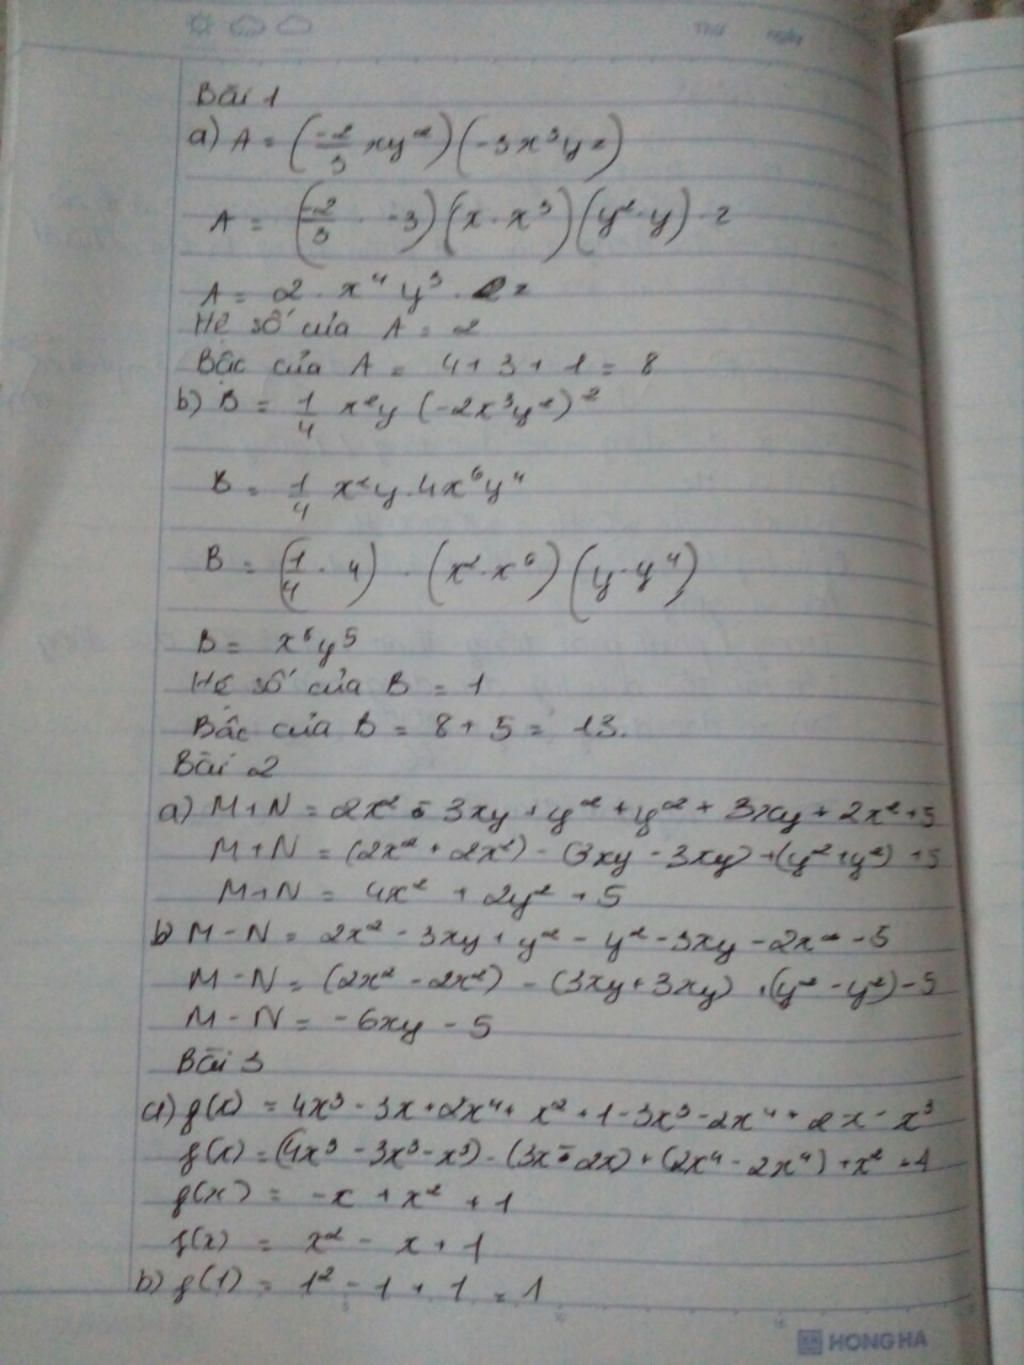 Thứ ngày
Bài 1
a) A = (-2/3 xy²)(-3x³yz)
A = (-2/3 . -3)(x . x³)(y² . y) . z
A = 2 . x⁴ y³ . z
Hệ số của A = 2
Bậc của A = 4 + 3 + 1 = 8
b) B = 1/4 x²y (-2x³y²)²
B = 1/4 x²y . 4x⁶y⁴
B = (1/4 . 4) . (x² . x⁶)(y . y⁴)
B = x⁸y⁵
Hệ số của B = 1
Bậc của B = 8 + 5 = 13.
Bài 2
a) M+N = 2x² - 3xy + y² + y² + 3xy + 2x² + 5
M+N = (2x² + 2x²) - (3xy - 3xy) + (y² + y²) + 5
M+N = 4x² + 2y² + 5
b) M - N = 2x² - 3xy + y² - y² - 3xy - 2x² - 5
M - N = (2x² - 2x²) - (3xy + 3xy) + (y² - y²) - 5
M - N = -6xy - 5
Bài 3
a) f(x) = 4x³ - 3x + 2x⁴ + x² + 1 - 3x³ - 2x⁴ + 2x - x³
f(x) = (4x³ - 3x³ - x³) - (3x - 2x) + (2x⁴ - 2x⁴) + x² + 1
f(x) = -x + x² + 1
f(x) = x² - x + 1
b) f(1) = 1² - 1 + 1 = 1
HONG HA